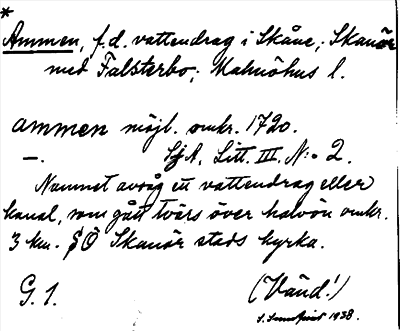 *
Ammen, f.d. vattendrag i Skåne; Skanör
med Falsterbo; Malmöhus l.
ammen möjl. omkr. 1720.
—. SjA, Litt. III, No 2.
Namnet avsåg ett vattendrag eller
kanal, som gått tvärs över halvön omkr.
3 km. SÖ Skanör stads kyrka.
G. 1. (Vänd!)
S. Sundqvist 1938.